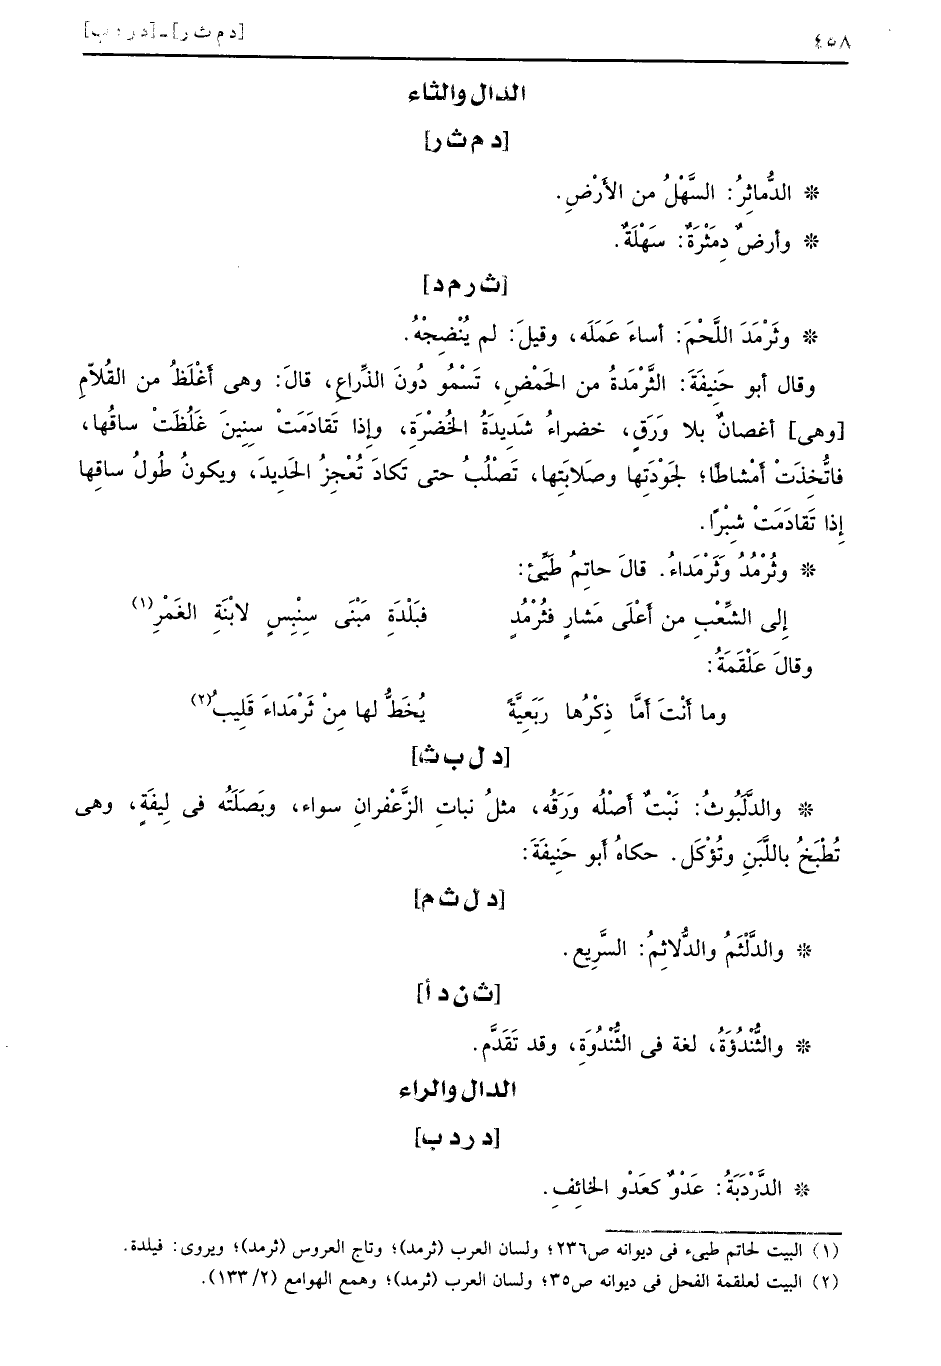 ٤٥٨ [د م ث ر] ـ [د ر د ب]
الدال والثاء
[د م ث ر]
* الدُّماثِرُ: السَّهْلُ من الأَرْضِ.
* وأرضٌ دِمَثْرَةٌ: سَهْلَةٌ.
[ث ر م د]
* وثَرْمَدَ اللَّحْمَ: أساءَ عَمَلَه، وقيلَ: لم يُنْضِجْهُ.
وقال أبو حَنِيفَةَ: الثَّرْمَدةُ من الحَمْضِ، تَسْمُو دُونَ الذِّراعِ، قالَ: وهى أَغْلَظُ من القُلاَّمِ
[وهى] أغصانٌ بلا وَرَقٍ، خضراءُ شَدِيدَةُ الخُضْرَةِ، وإذا تَقادَمَتْ سِنِينَ غَلُظَتْ ساقُها،
فاتُّخِذَتْ أمْشاطًا؛ لجَوْدَتِها وصَلابَتِها، تَصْلُبُ حتى تَكادَ تُعْجِزُ الحَدِيدَ، ويكونُ طُولُ ساقِها
إذا تَقادَمَتْ شِبْرًا.
* وثُرْمُدُ وَثَرْمَداءُ. قالَ حاتِمُ طَيِّئ:
إلى الشِّعْبِ من أَعْلَى مَشارٍ فثُرْمُدٍ فبَلْدَةِ مَبْنَى سِنْبِسٍ لابْنَةِ الغَمْرِ(١)
وقالَ عَلْقَمَةُ:
وما أَنْتَ أمَّا ذِكْرُها رَبَعِيَّةً يُخَطُّ لها مِنْ ثَرْمَداءَ قَلِيبُ(٢)
[د ل ب ث]
* والدَّلَبُوثُ: نَبْتٌ أصْلُه وَرَقُه، مثلُ نباتِ الزَّعْفرانِ سواء، وبَصَلَتُه فى لِيفَةٍ، وهى
تُطْبَخُ باللَّبَنِ وتُؤْكَل. حكاهُ أبو حَنِيفَةَ:
[د ل ث م]
* والدَّلْثَمُ والدُّلاثِمُ: السَّرِيع.
[ث ن د أ]
* والثُّنْدُؤَةُ، لغة فى الثُّنْدُوَةِ، وقد تَقَدَّم.
الدال والراء
[د ر د ب]
* الدَّرْدَبَةُ: عَدْوٌ كعَدْوِ الخائِفِ.
(١) البيت لحاتم طيىء فى ديوانه ص٢٣٦؛ ولسان العرب (ثرمد)؛ وتاج العروس (ثرمد)؛ ويروى: فيلدة.
(٢) البيت لعلقمة الفحل فى ديوانه ص٣٥؛ ولسان العرب (ثرمد)؛ وهمع الهوامع (١٣٣/٢).